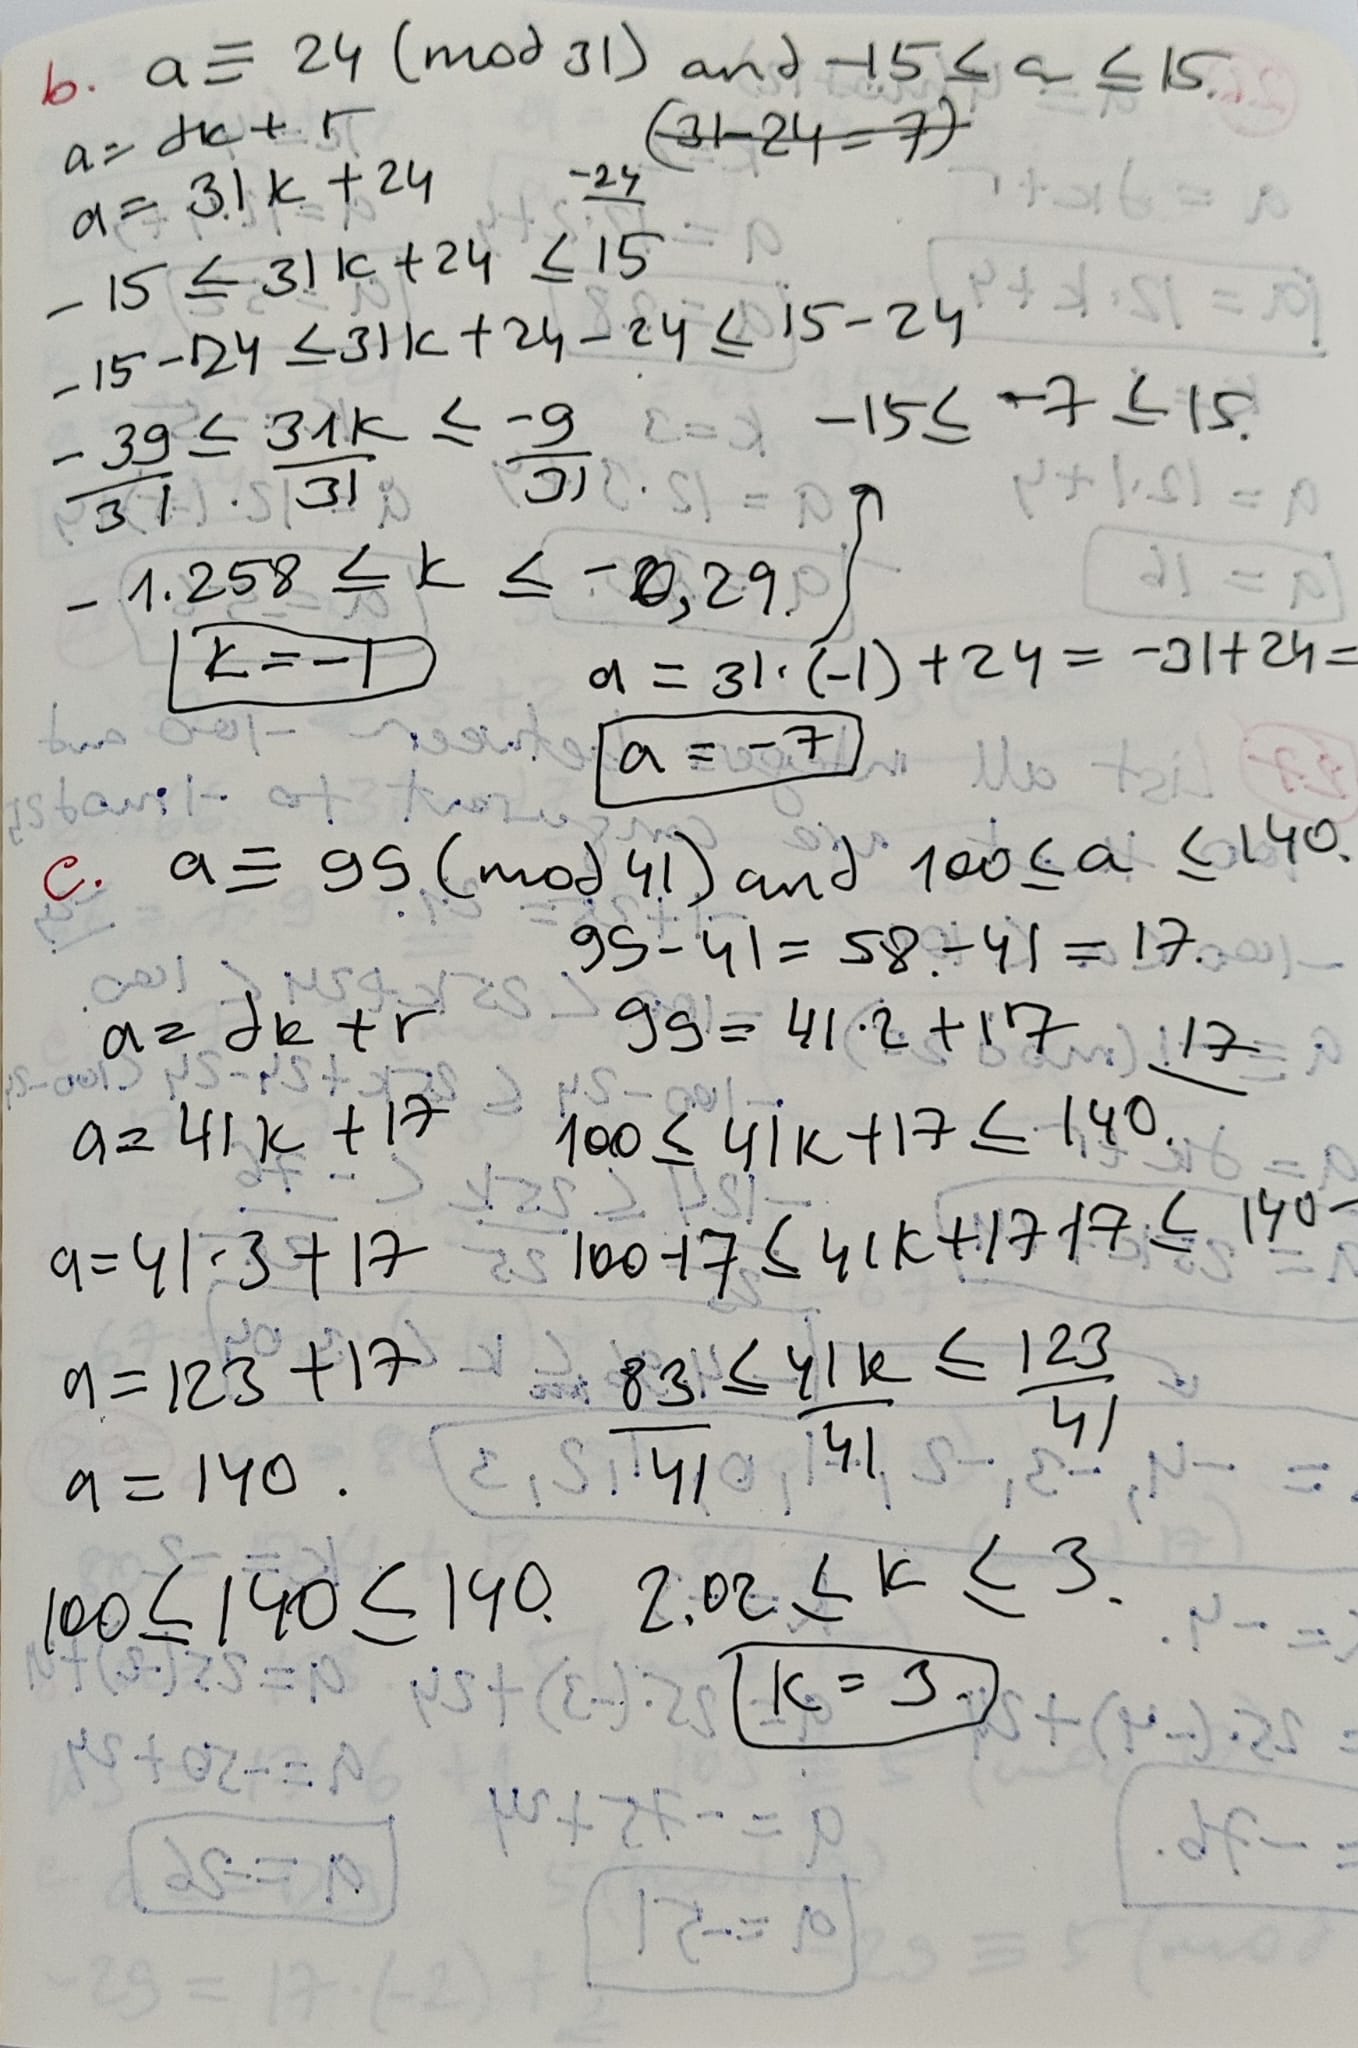 b. a ≡ 24 (mod 31) and -15 ≤ a ≤ 15.
a = dk + r (31-24=7)
a = 31k + 24 -24
-15 ≤ 31k + 24 ≤ 15
-15-24 ≤ 31k + 24 - 24 ≤ 15-24
-39/31 ≤ 31k/31 ≤ -9/31 -15 ≤ -7 ≤ 15.
-1.258 ≤ k ≤ -0,29.
k = -1 a = 31·(-1) + 24 = -31+24 =
a = -7
c. a ≡ 99 (mod 41) and 100 ≤ a ≤ 140.
99-41 = 58.-41 = 17.
a = dk + r 99 = 41·2 + 17 17
a = 41k + 17 100 ≤ 41k + 17 ≤ 140.
a = 41·3 + 17 100-17 ≤ 41k+17-17 ≤ 140-
a = 123 + 17 83/41 ≤ 41k/41 ≤ 123/41
a = 140.
100 ≤ 140 ≤ 140. 2.02 ≤ k ≤ 3.
k = 3.